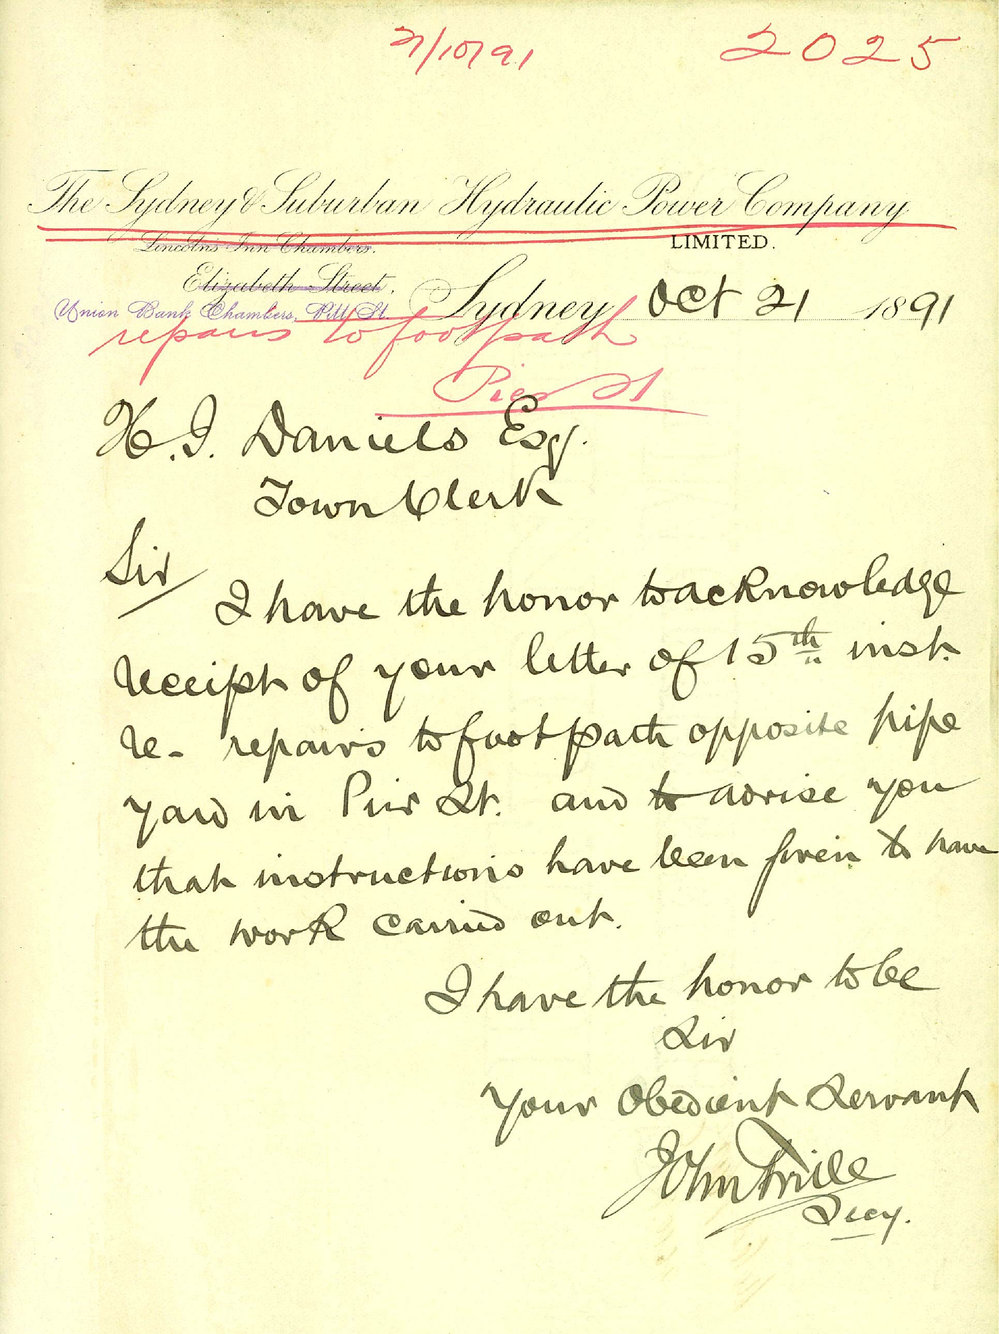 21/10/91 2025
The Sydney & Suburban Hydraulic Power Company
LIMITED.
Lincolns Inn Chambers.
Elizabeth Street.
Union Bank Chambers, Pitt St.
Sydney Oct 21 1891
repairs to footpath
Pier St
H. J. Daniels Esq.
Town Clerk
Sir
I have the honor to acknowledge
receipt of your letter of 15th inst.
re- repairs to footpath opposite pipe
yard in Pier St. and to advise you
that instructions have been given to have
the work carried out.
I have the honor to be
Sir
Your Obedient Servant
John
Secy.